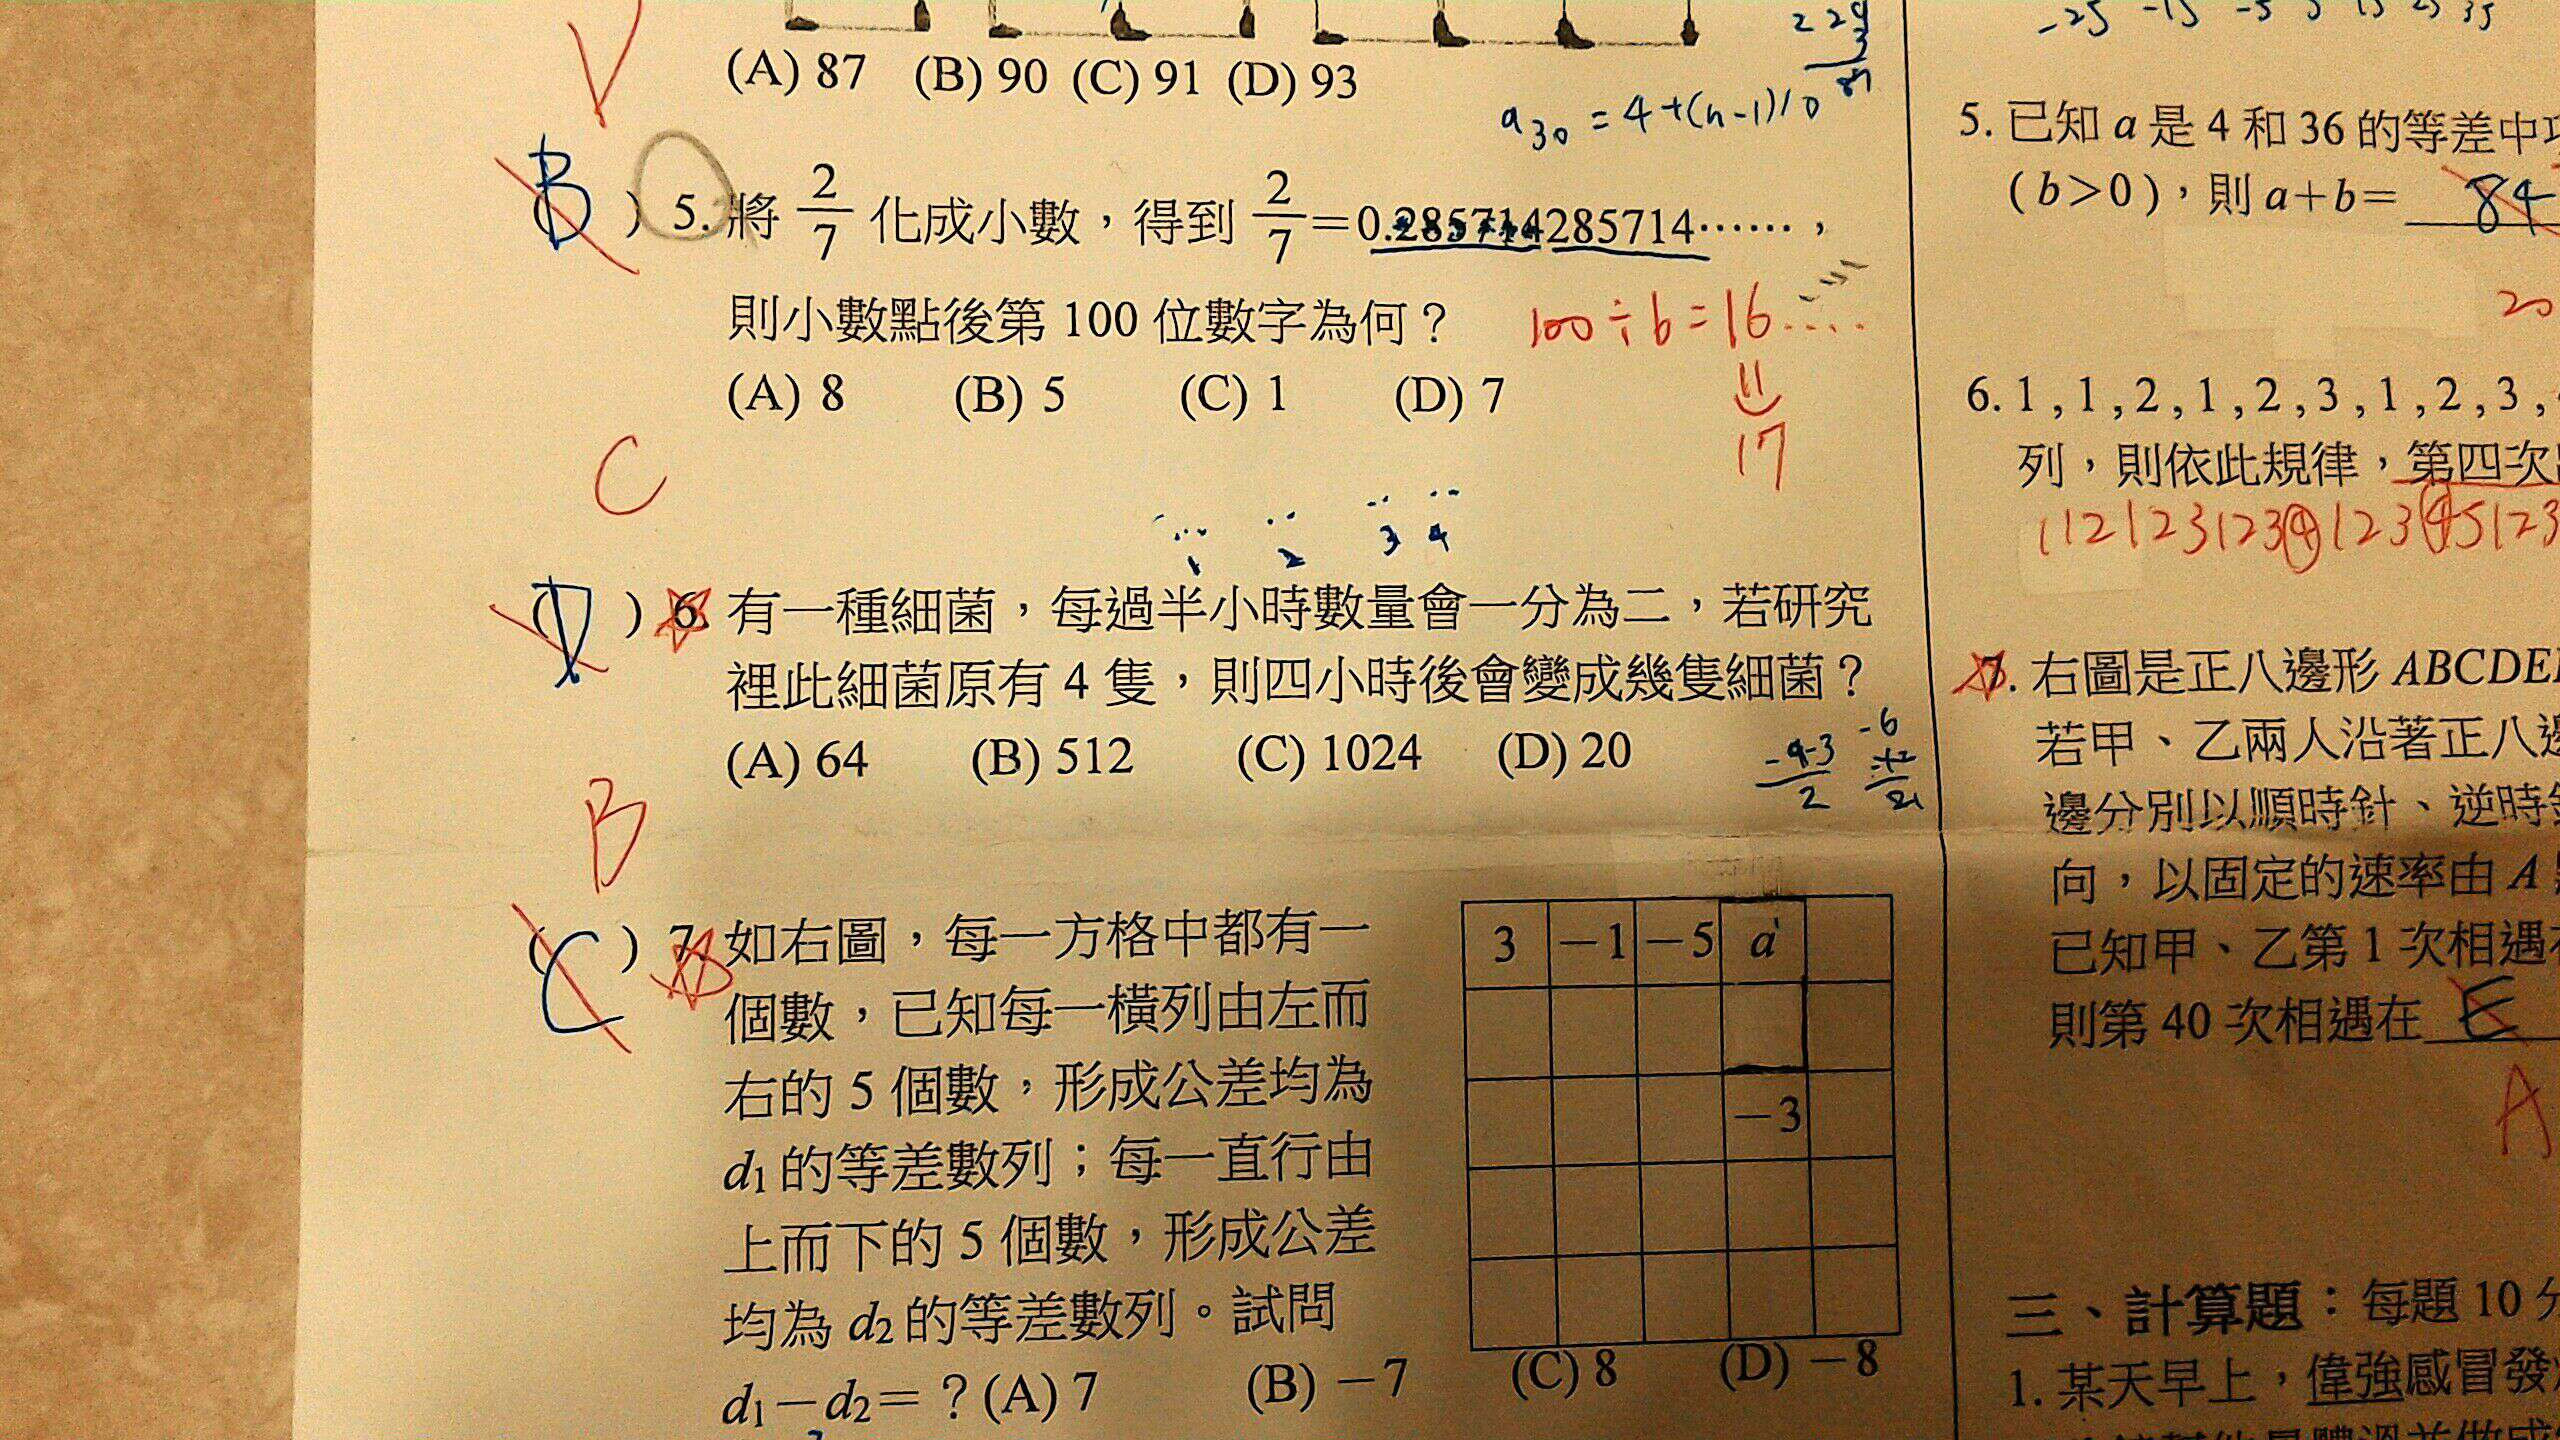 (A) 87 (B) 90 (C) 91 (D) 93
a₃₀ = 4+(n-1)10
(B) 5. 將 2/7 化成小數，得到 2/7=0.285714285714……，
則小數點後第 100 位數字為何？
100÷6=16....
17
(A) 8 (B) 5 (C) 1 (D) 7
C
1 2 3 4
(D) 6. 有一種細菌，每過半小時數量會一分為二，若研究
裡此細菌原有 4 隻，則四小時後會變成幾隻細菌？
(A) 64 (B) 512 (C) 1024 (D) 20
B
(C) 7. 如右圖，每一方格中都有一
個數，已知每一橫列由左而
右的 5 個數，形成公差均為
d₁ 的等差數列；每一直行由
上而下的 5 個數，形成公差
均為 d₂ 的等差數列。試問
d₁－d₂＝？(A) 7 (B) －7 (C) 8 (D) －8
3 －1 －5 a
－3
-25 -15 -5 5 15 25 35
5. 已知 a 是 4 和 36 的等差中
(b＞0)，則 a＋b＝ 84
20
6. 1 , 1 , 2 , 1 , 2 , 3 , 1 , 2 , 3 ,
列，則依此規律，第四次
112123123412345123
7. 右圖是正八邊形 ABCDE
若甲、乙兩人沿著正八邊
邊分別以順時針、逆時針
向，以固定的速率由 A
已知甲、乙第 1 次相遇在
則第 40 次相遇在 E
A
三、計算題：每題 10 分
1. 某天早上，偉強感冒發